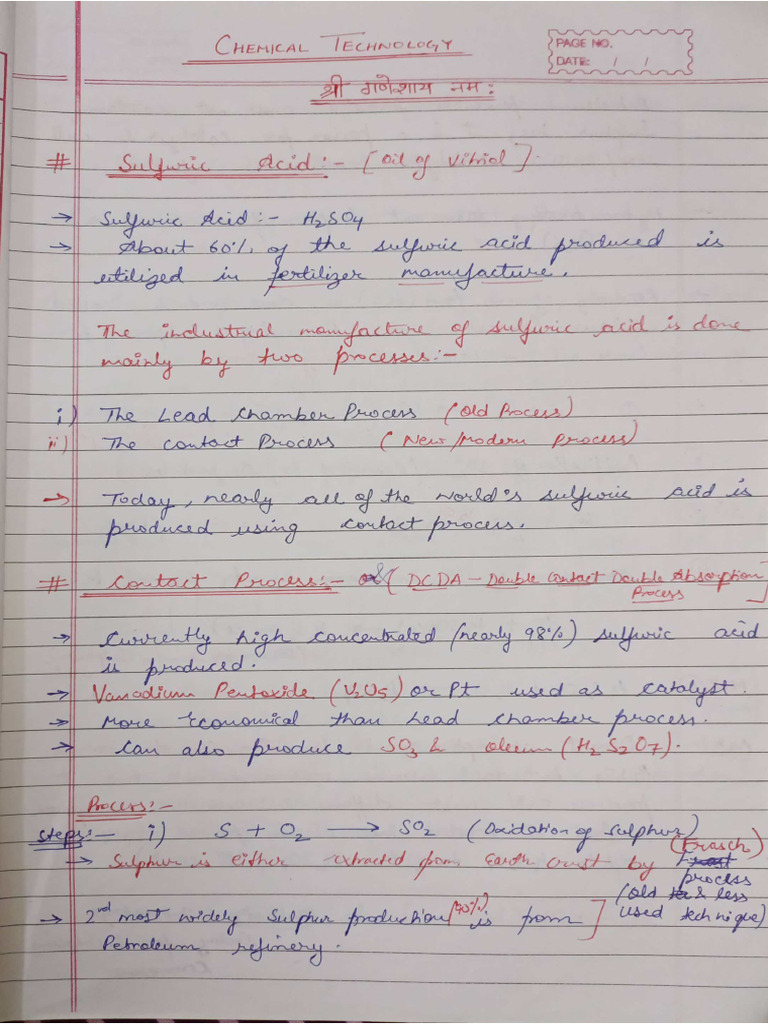 CHEMICAL TECHNOLOGY
PAGE NO.
DATE: / /
श्री गणेशाय नमः
# Sulfuric Acid :- [Oil of Vitriol]
→ Sulfuric Acid :- H2SO4
→ About 60% of the sulfuric acid produced is
utilized in fertilizer manufacture.
The industrial manufacture of sulfuric acid is done
mainly by two processes :-
i) The Lead Chamber Process (Old Process)
ii) The Contact Process (New/Modern Process)
→ Today, nearly all of the world's sulfuric acid is
produced using contact process.
# Contact Process :- or [DCDA - Double Contact Double Absorption
Process]
→ Currently high concentrated (nearly 98%) sulfuric acid
is produced.
→ Vanadium Pentoxide (V2O5) or Pt used as catalyst.
→ More Economical than Lead chamber process.
→ Can also produce SO3 & oleum (H2S2O7).
Process :-
Steps :- i) S + O2 → SO2 (Oxidation of Sulphur)
→ Sulphur is either extracted from Earth crust by (Frasch)
process
(Old & less
used technique)
→ 2nd most widely Sulphur production (90%) is from
Petroleum refinery.